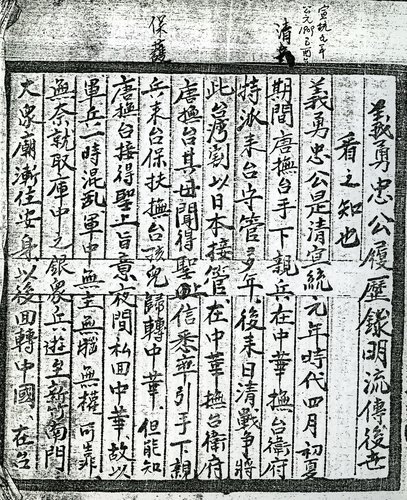 宣統元年
公元1909己酉
保護
義勇忠公履歷錄明流傳後世
看之知也
義勇忠公是清宣統元年時代四月初夏
期間唐撫台手下親兵在中華撫台衛府
特派來台守管多年、後來日清戰爭將
此台灣割以日本接管、在中華撫台衛府
唐撫台其母聞得聖上信悉並引手下親
兵來台保扶撫台該兒歸轉中華、但能知
唐撫台接得聖上旨意夜間私回中華、故以
軍兵一時混乱軍中無主無無權可靠
無奈就取庫中之銀眾兵遊至新竹南門
大眾廟漸住安身以後回轉中國、在名